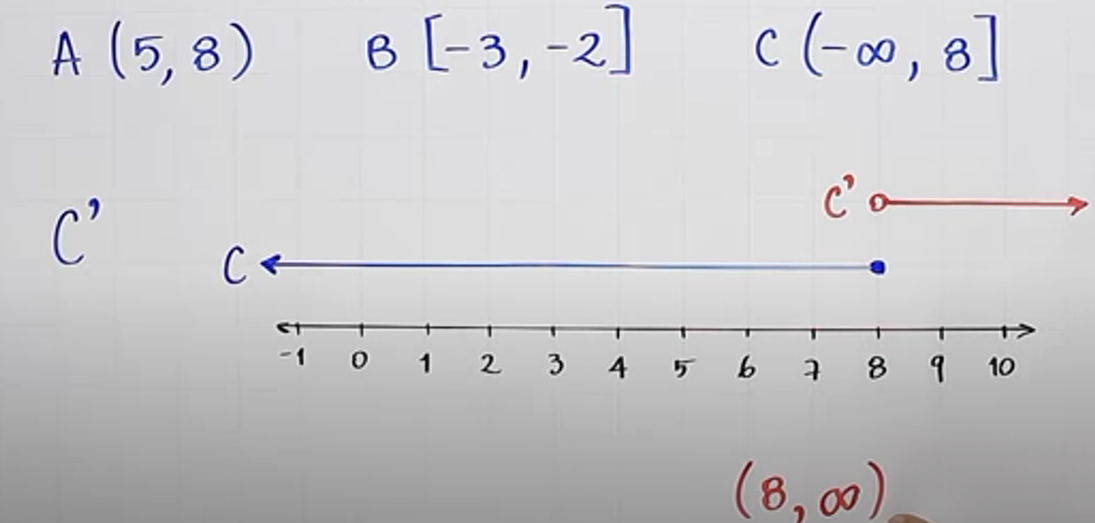 A (5, 8) B [-3, -2] C (-∞, 8]
C' o
C'
C
-1 0 1 2 3 4 5 6 7 8 9 10
(8, ∞)